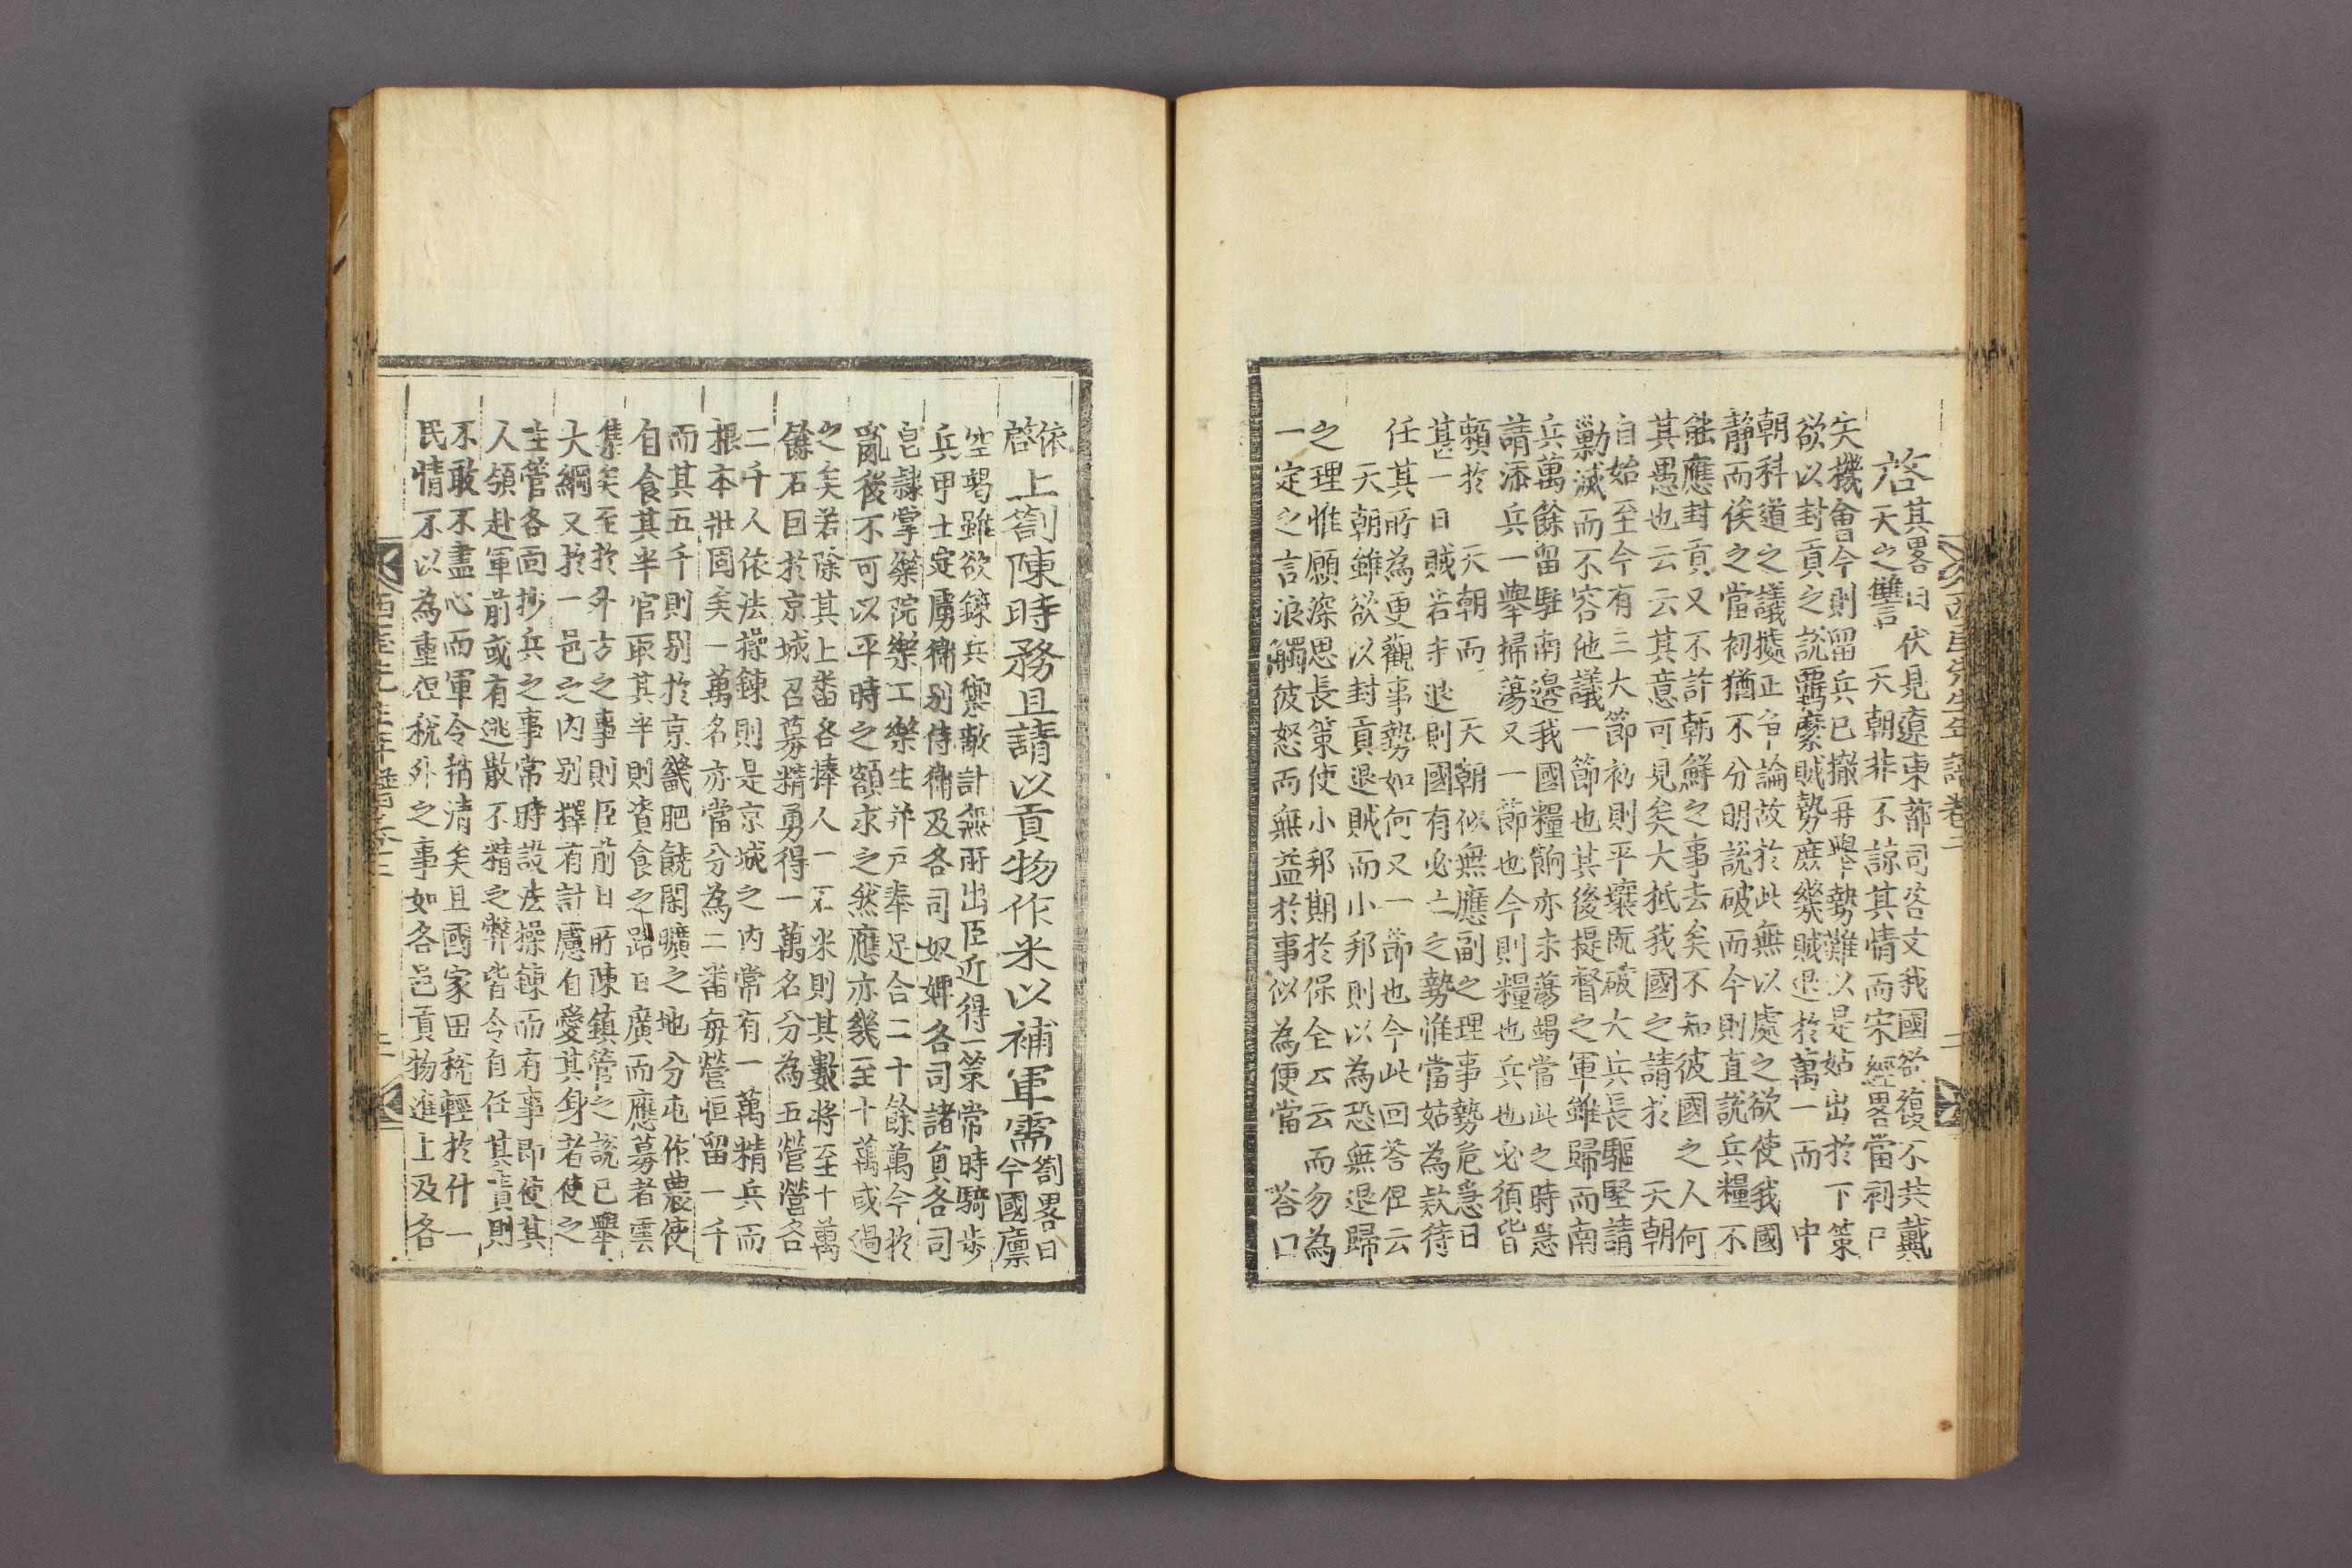 西厓先生年譜卷二
啓其畧曰伏見遼東都司咨文我國欲復不共戴
天之讐 天朝非不諒其情而宋經畧當初
失機會今則留兵已撤再擧勢難以是姑出於下策
欲以封貢之說羈縻賊勢庶幾賊退於萬一而 中
朝科道之議據正 論故於此無以處之欲使我國
靜而俟之當初猶不分明說破而今則直說兵糧不
能應封貢又不許朝鮮之事去矣不知彼國之人何
其愚也云云其意可見矣大抵我國之請求 天朝
自始至今有三大節初則平壤旣破大兵長驅堅請
勦滅而不容他議一節也其後提督之軍雖歸而南
兵萬餘留駐南邊我國糧餉亦未蕩竭當此之時急
請添兵一擧掃蕩又一節也今則糧也兵也必須皆
賴於 天朝而 天朝似無應副之理事勢危急日
甚一日賊若未退則國有必亡之勢惟當姑爲款待
任其所爲更觀事勢如何又一節也今此回答但云
天朝雖欲以封貢退賊而小邦則以爲恐無退歸
之理惟願深思長策使小邦期於保全云云而勿爲
一定之言浪觸彼怒而無益於事似爲便當 答曰
依
啓 上箚陳時務且請以貢物作米以補軍需箚畧曰今國廩
空竭雖欲鍊兵禦敵計無所出臣近得一策常時騎步
兵甲士定虜衛別侍衛及各司奴婢各司諸員各司
皂隷掌樂院樂工樂生幷戶奉足合二十餘萬今於
亂後不可以平時之額求之然應亦幾至十萬或過
之矣若除其上番各捧人一石米則其數將至十萬
餘石因於京城召募精勇得一萬名分爲五營營各
二千人依法操鍊則是京城之內常有一萬精兵而
根本壯固矣一萬名亦當分爲二番每營恒留一千
而其五千則別於京畿肥饒閑曠之地分屯作農使
自食其半官取其半則資食之路日廣而應募者雲
集矣至於外方之事則臣前日所陳鎭管之說已擧
大綱又於一邑之內別擇有計慮自愛其身者使之
主管各面抄兵之事常時設法操鍊而有事卽使其
人領赴軍前或有逃散不精之弊皆令自任其責則
不敢不盡心而軍令稍淸矣且國家田稅輕於什一
民情不以爲重但稅外之事如各邑貢物進上及各
西厓先生年譜卷二